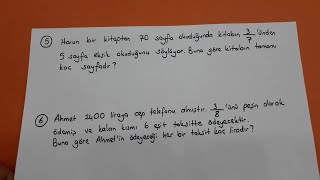 5) Harun bir kitaptan 70 sayfa okuduğunda kitabın 3/7 'ünden
5 sayfa eksik okuduğunu söylüyor. Buna göre kitabın tamamı
kaç sayfadır?
6) Ahmet 2400 liraya cep telefonu almıştır. 3/8 'ünü peşin olarak
ödemiş ve kalan kısmı 6 eşit taksitte ödeyecektir.
Buna göre Ahmet'in ödeyeceği her bir taksit kaç liradır?